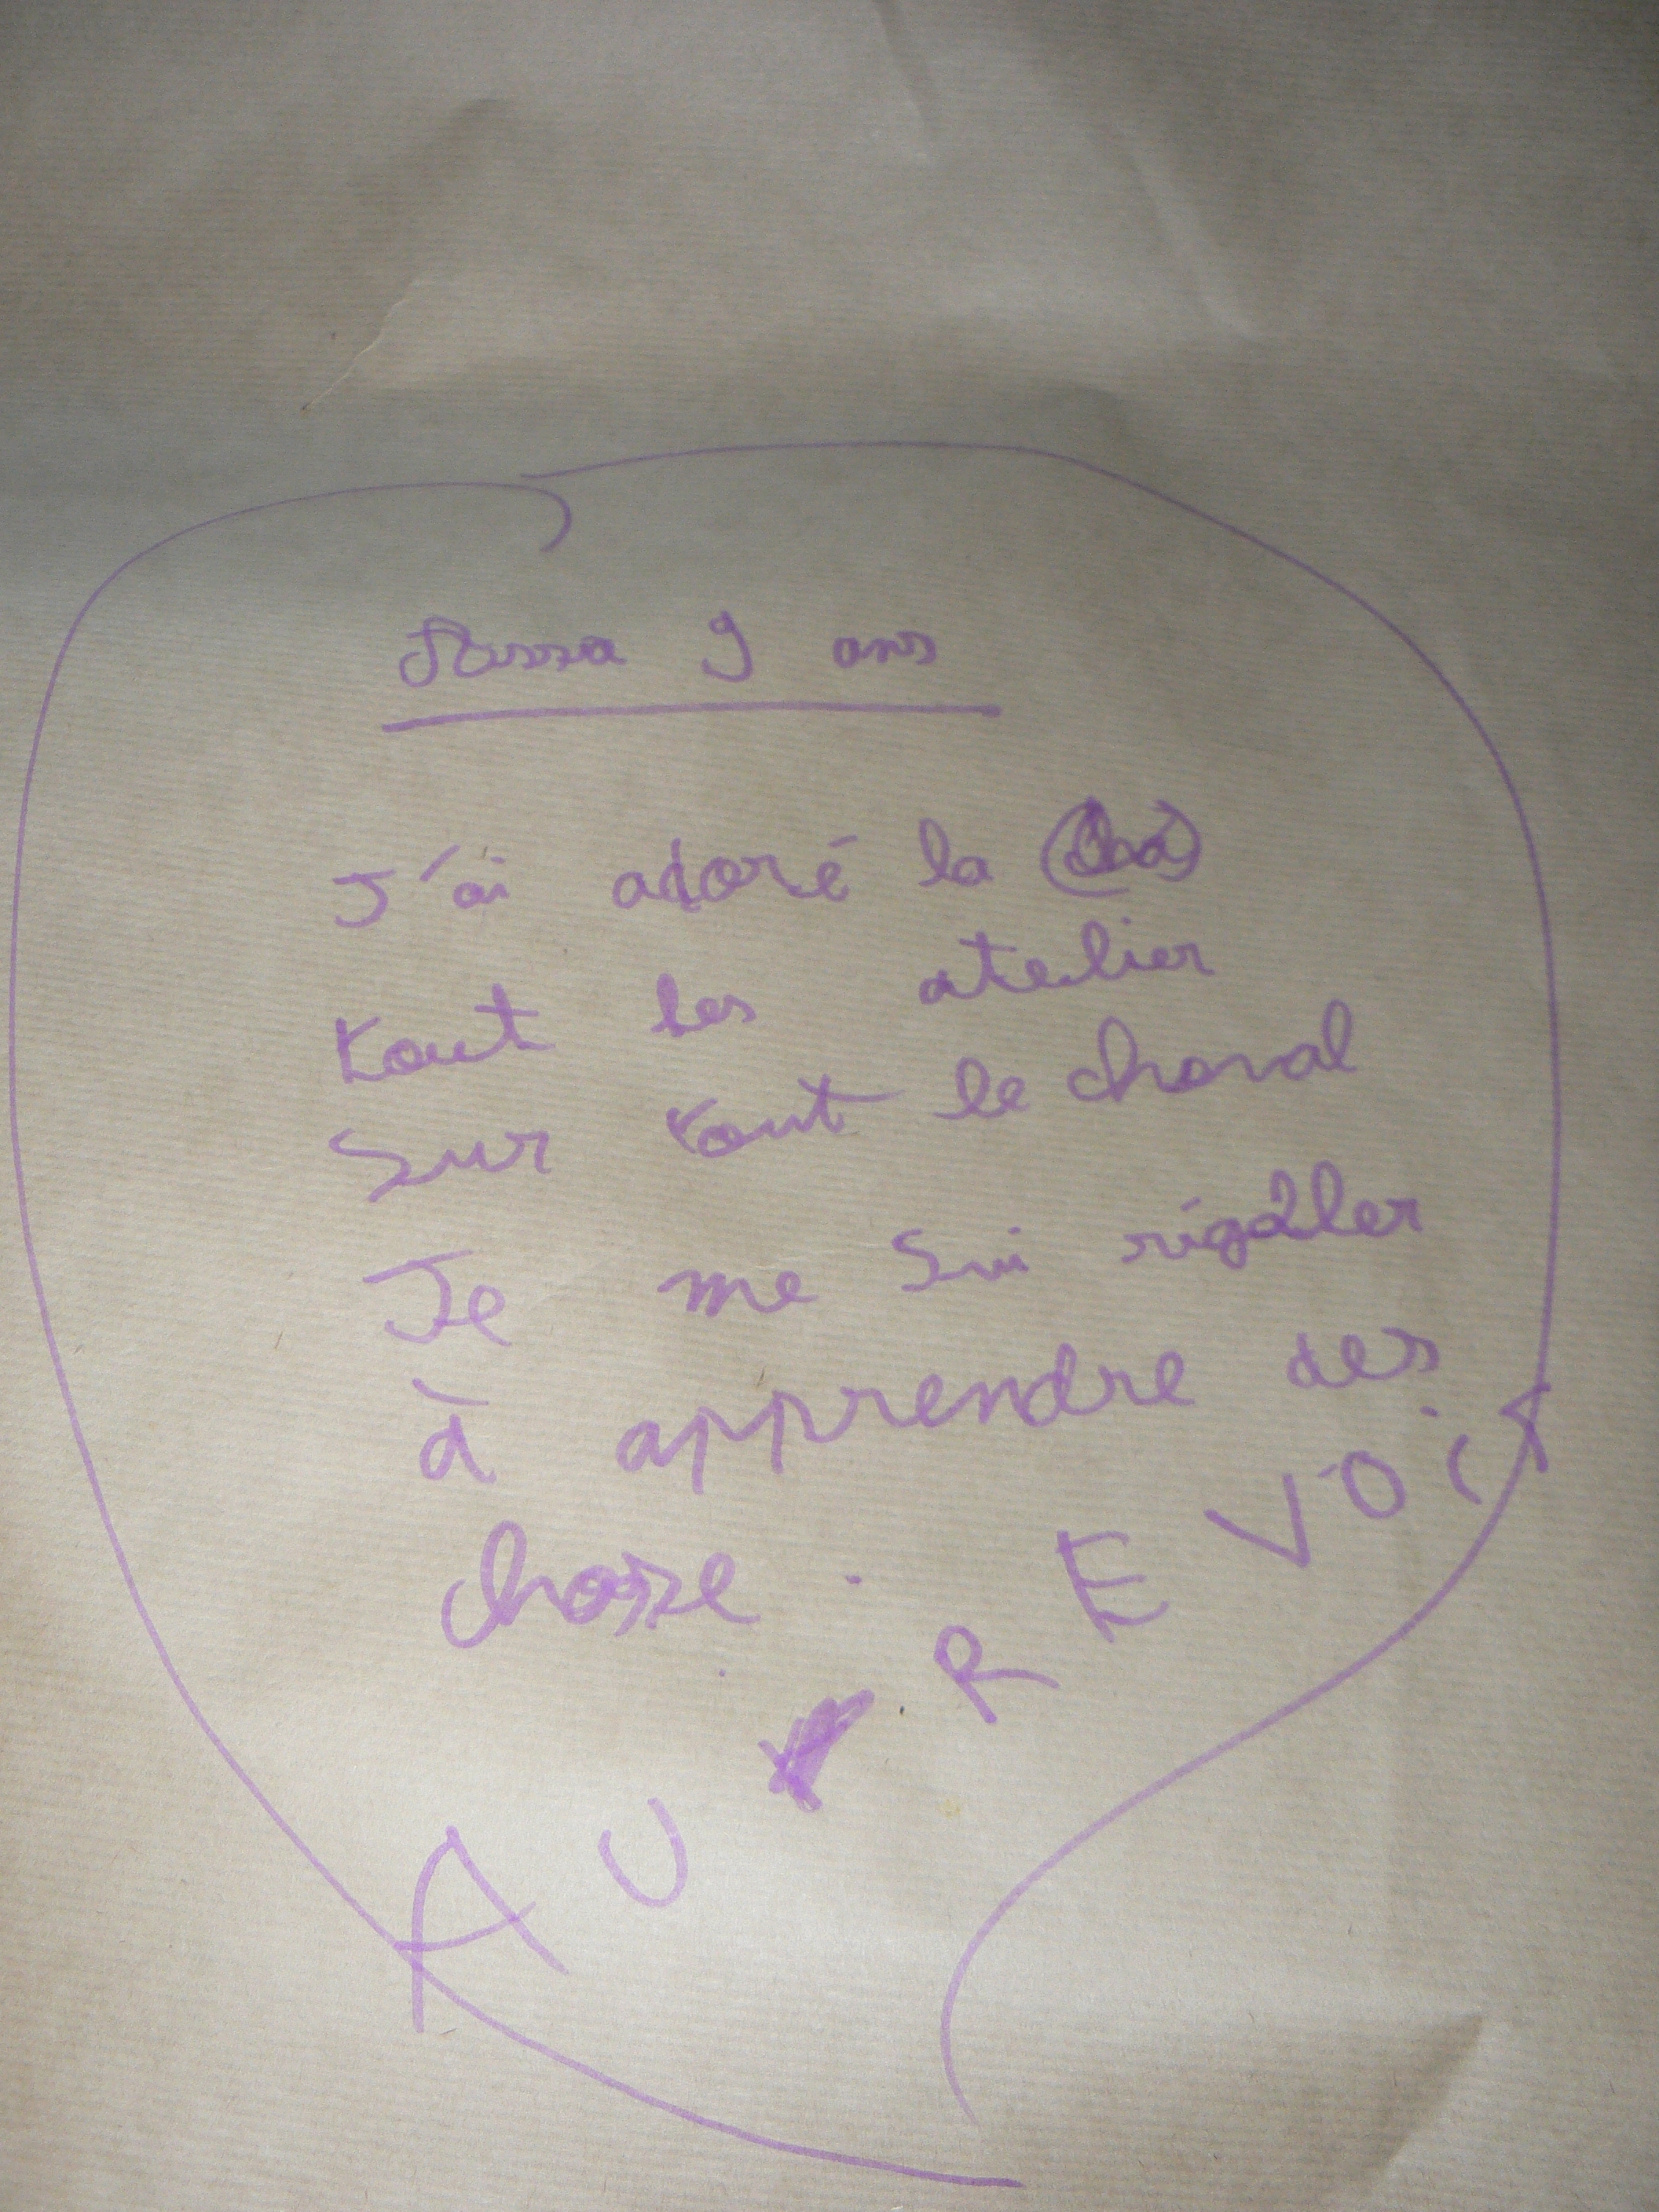 9 ans
J'ai adoré la
tout les atelier
sur tout le cheval
Je me sui régaler
à apprendre des
chose.
AU REVOIR